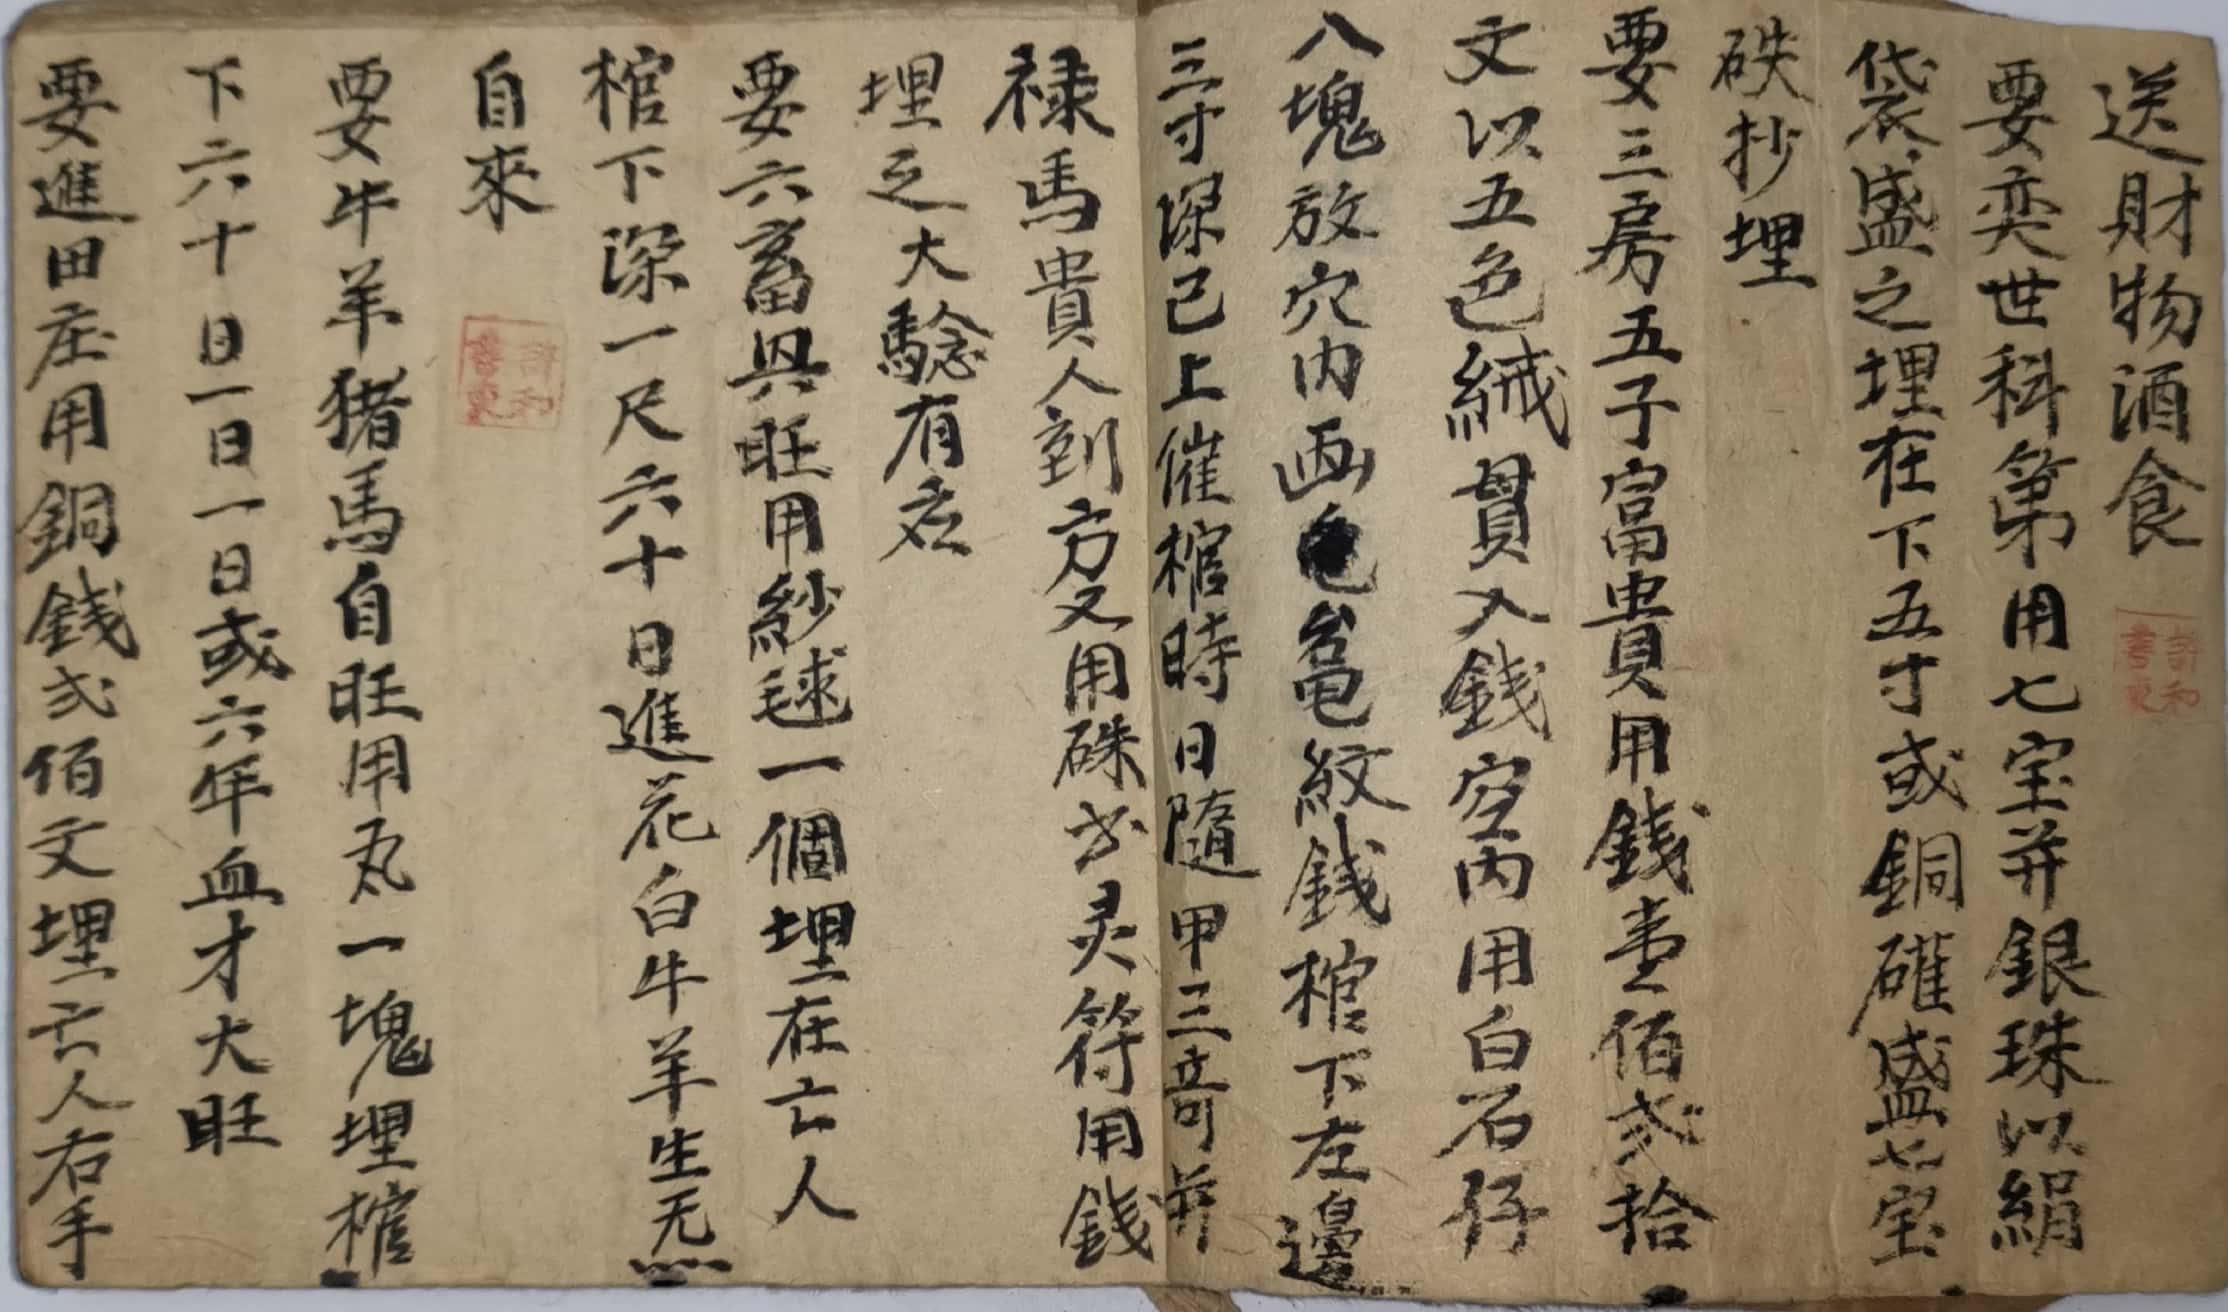 送財物酒食
要奕世科第用七宝并銀珠以絹
袋盛之埋在下五寸或銅礶盛七宝
砄抄埋
要三房五子富貴用錢壹佰弍拾
文以五色絨貫入錢空內用白石仔
八塊放穴內画龟紋錢棺下左邊
三寸深已上催棺時日隨甲三奇并
禄馬貴人到方又用硃书灵符用錢
埋之大驗有応
要六畜興旺用紗毬一個埋在亡人
棺下深一尺六十日進花白牛羊生炁
自來
要牛羊猪馬自旺用丸一塊埋棺
下六十日一日一日或六年血才大旺
要進田庄用銅錢弍佰文埋亡人右手